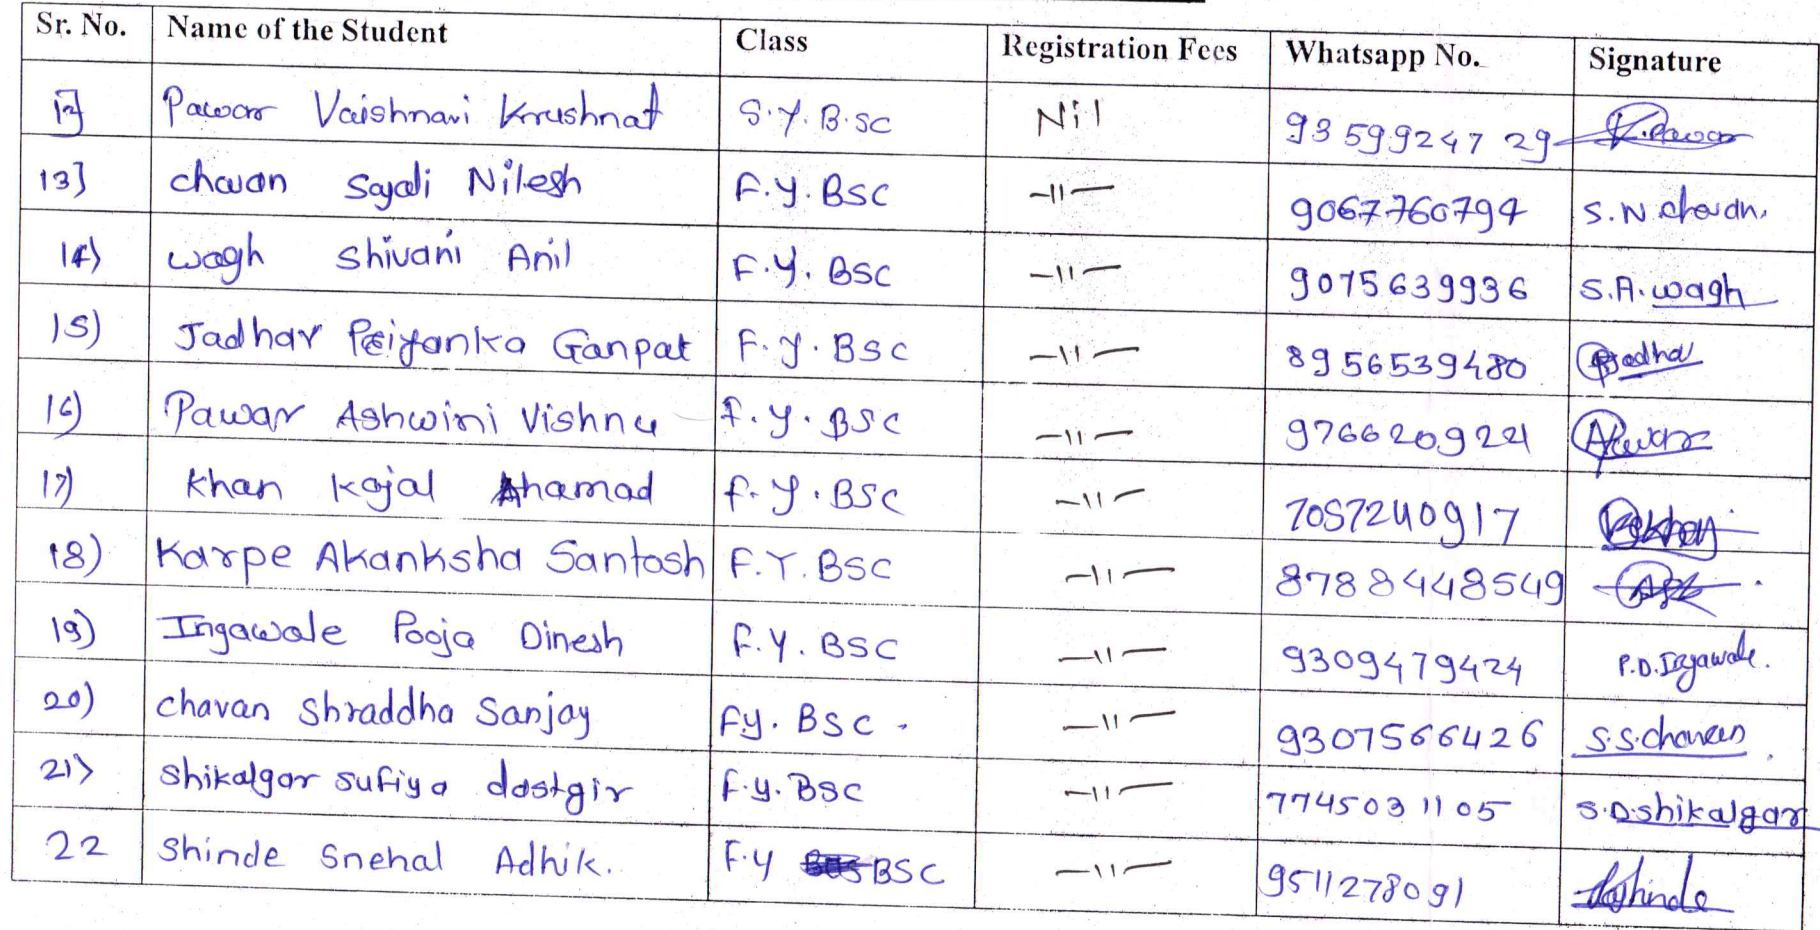 Sr. No. Name of the Student Class Registration Fees Whatsapp No. Signature
12] Pawar Vaishnavi Krushnat S.Y.B.SC Nil 9359924729 V.Pawar
13] chavan Sayali Nilesh F.Y.BSC -11- 9067760794 S.N.chavan.
14) wagh Shivani Anil F.Y.BSC -11- 9075639936 S.A.wagh
15) Jadhav Priyanka Ganpat F.Y.BSC -11- 8956539480 PJadhav
16) Pawar Ashwini Vishnu F.Y.BSC -11- 9766209221 APawar
17) Khan Kajal Ahamad F.Y.BSC -11- 7057240917
18) Karpe Akanksha Santosh F.Y.BSC -11- 8788448549
19) Ingawale Pooja Dinesh F.Y.BSC -11- 9309479424 P.D.Ingawale.
20) chavan Shraddha Sanjay F.y.BSC. -11- 9307566426 S.S.chavan
21) Shikalgar sufiya dastgir F.Y.BSC -11- 7745031105 S.D.shikalgar
22 Shinde Snehal Adhik. F.Y BSC -11- 9511278091 Shinde